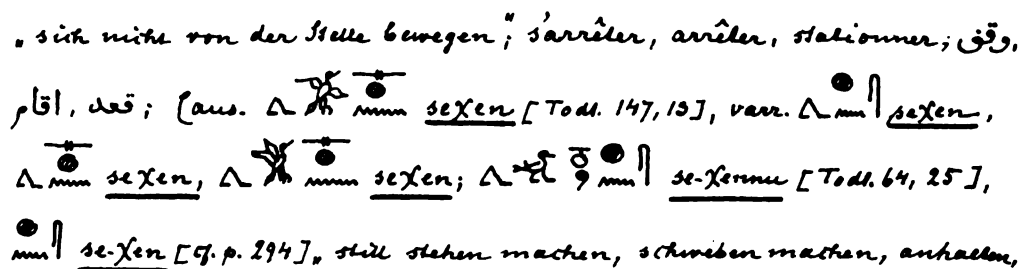 „sich nicht von der Stelle bewegen“; s'arrêter, arrêter, stationner; وقف,
قعد, اقام; (aus. seχen [Todt. 147, 13], varr. seχen,
seχen, seχen; se-χennu [Todt. 64, 25],
se-χen [cf. p. 294] „still stehen machen, schweben machen, anhalten,